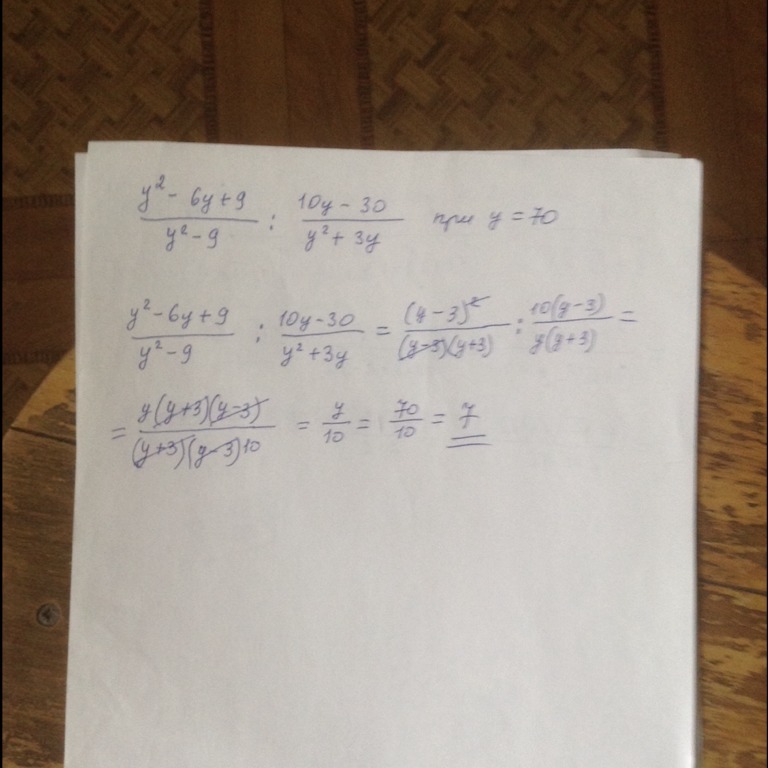 (y² - 6y + 9)/(y² - 9) : (10y - 30)/(y² + 3y) при y = 70
(y² - 6y + 9)/(y² - 9) : (10y - 30)/(y² + 3y) = (y - 3)²/((y - 3)(y + 3)) : 10(y - 3)/(y(y + 3)) =
= y(y + 3)(y - 3)/((y + 3)(y - 3)10) = y/10 = 70/10 = 7